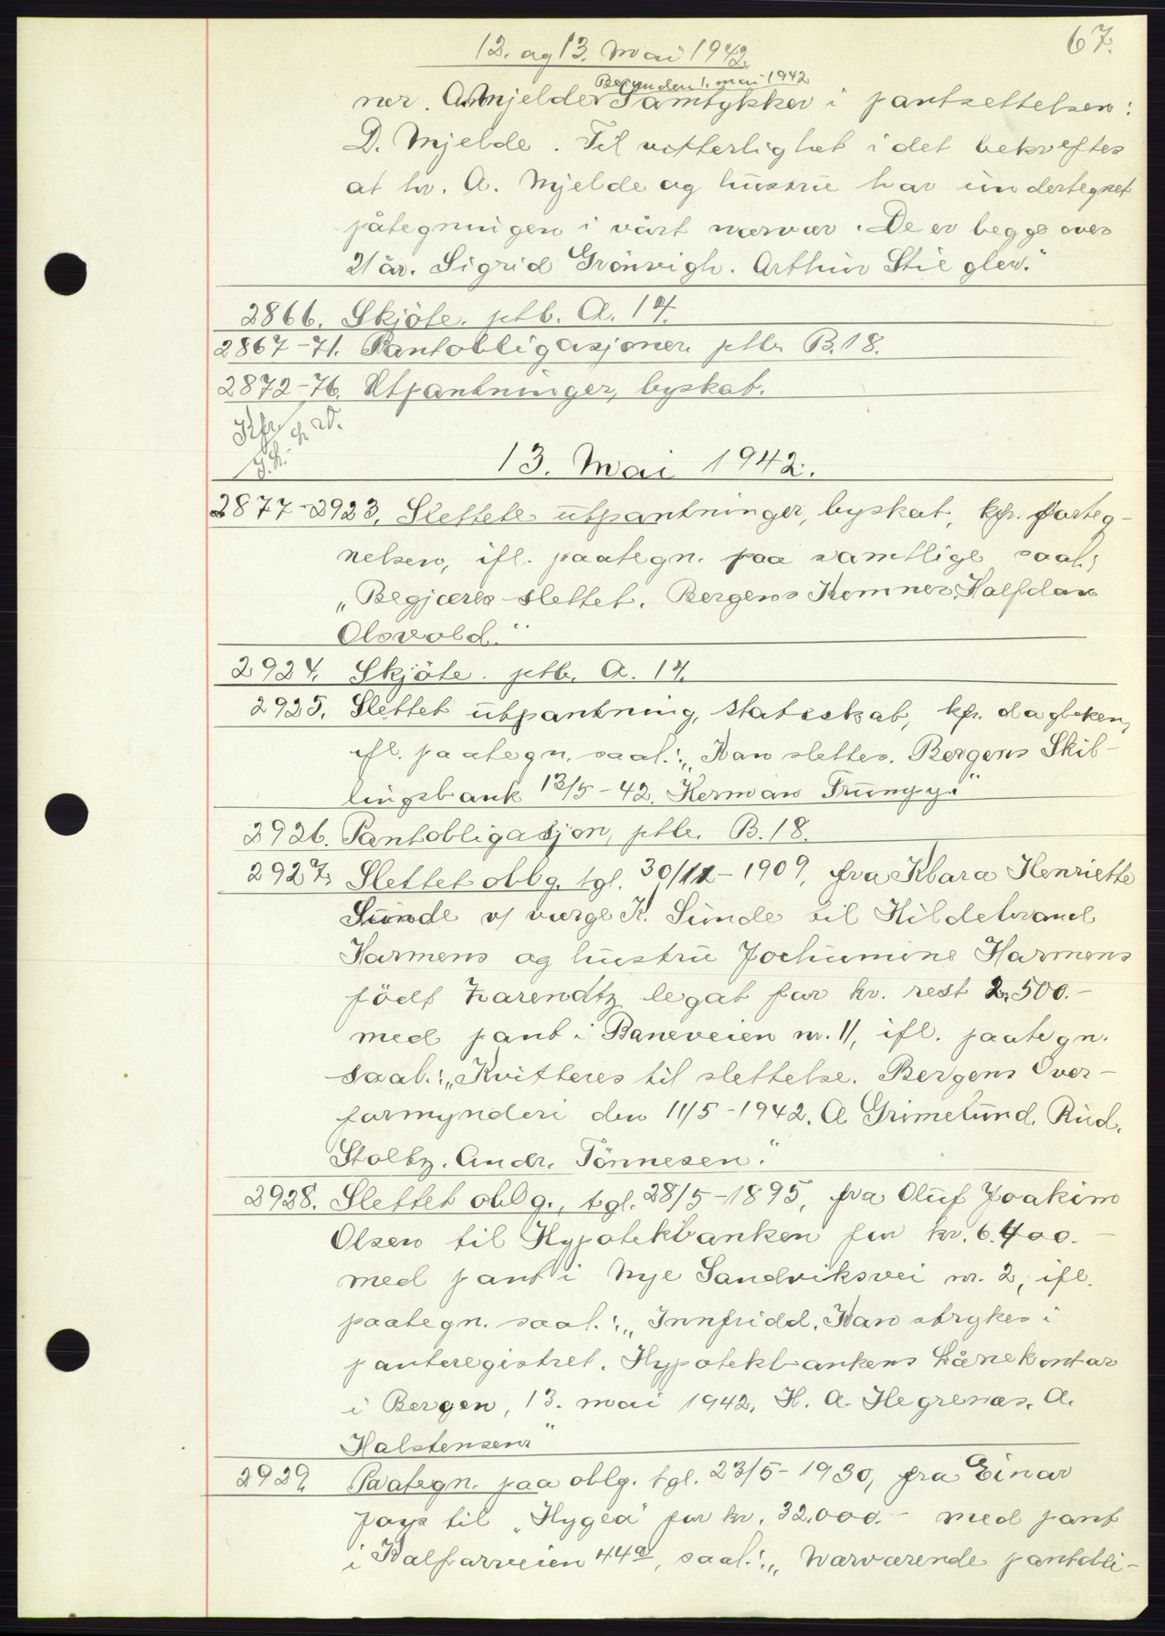 67.
12. og 13. Mai 1942
Bergen den 1. mai 1942
ner. A. Mjelde. Samtykker i pantsettelsen:
D. Mjelde. Til vitterlighet i det bekreftes
at hr. A. Mjelde og hustru har undertegnet
påtegningen i vårt nærvær. De er begge over
21 år. Sigrid Grönvigh. Arthur Stiegler."
2866. Skjöte. ptb. A. 14.
2867-71. Pantobligasjoner ptb. B. 18.
2872-76. Utpantninger, byskat.
13. Mai 1942.
2877-2923. Slettete utpantninger, byskat, kfr. forteg-
nelsen, ifl. paategn. paa samtlige saal.:
„Begjæres slettet. Bergens Kemner. Halfdan
Olsvold."
2924. Skjöte. ptb. A. 14.
2925. Slettet utpantning, statsskat, kfr. dagboken,
ifl. paategn. saal.: „Kan slettes. Bergens Skil-
lingsbank 12/5-42. Herman Trumpy."
2926. Pantobligasjon, ptb. B. 18.
2927. Slettet oblg. tgl. 30/12-1909, fra Klara Henriette
Sunde v/ verge K. Sunde til Hildebrand
Harmens og hustru Jochumine Harmens
födt Zarendtz legat for kr. rest 2.500.-
med pant i Baneveien nr. 11, ifl. paategn.
saal.: „Kvitteres til slettelse. Bergens Over-
formynderi den 11/5-1942. A Grimelund. Rud.
Stoltz. Andr. Tönnesen."
2928. Slettet oblg., tgl. 28/5-1895, fra Oluf Joakim
Olsen til Hypotekbanken for kr. 6.400.-
med pant i Nye Sandviksvei nr. 2, ifl.
paategn. saal.: „Innfridd. Kan strykes i
panteregistret. Hypotekbankens Lånekontor
i Bergen, 13. mai 1942. H. A. Hegrenæs. A.
Halstensen"
2929. Paategn. paa oblg. tgl. 23/5-1930, fra Einar
Joys til „Hygea" for kr. 32.000.- med pant
i Kalfarveien 44a, saal.: „Nærværende pantobli-